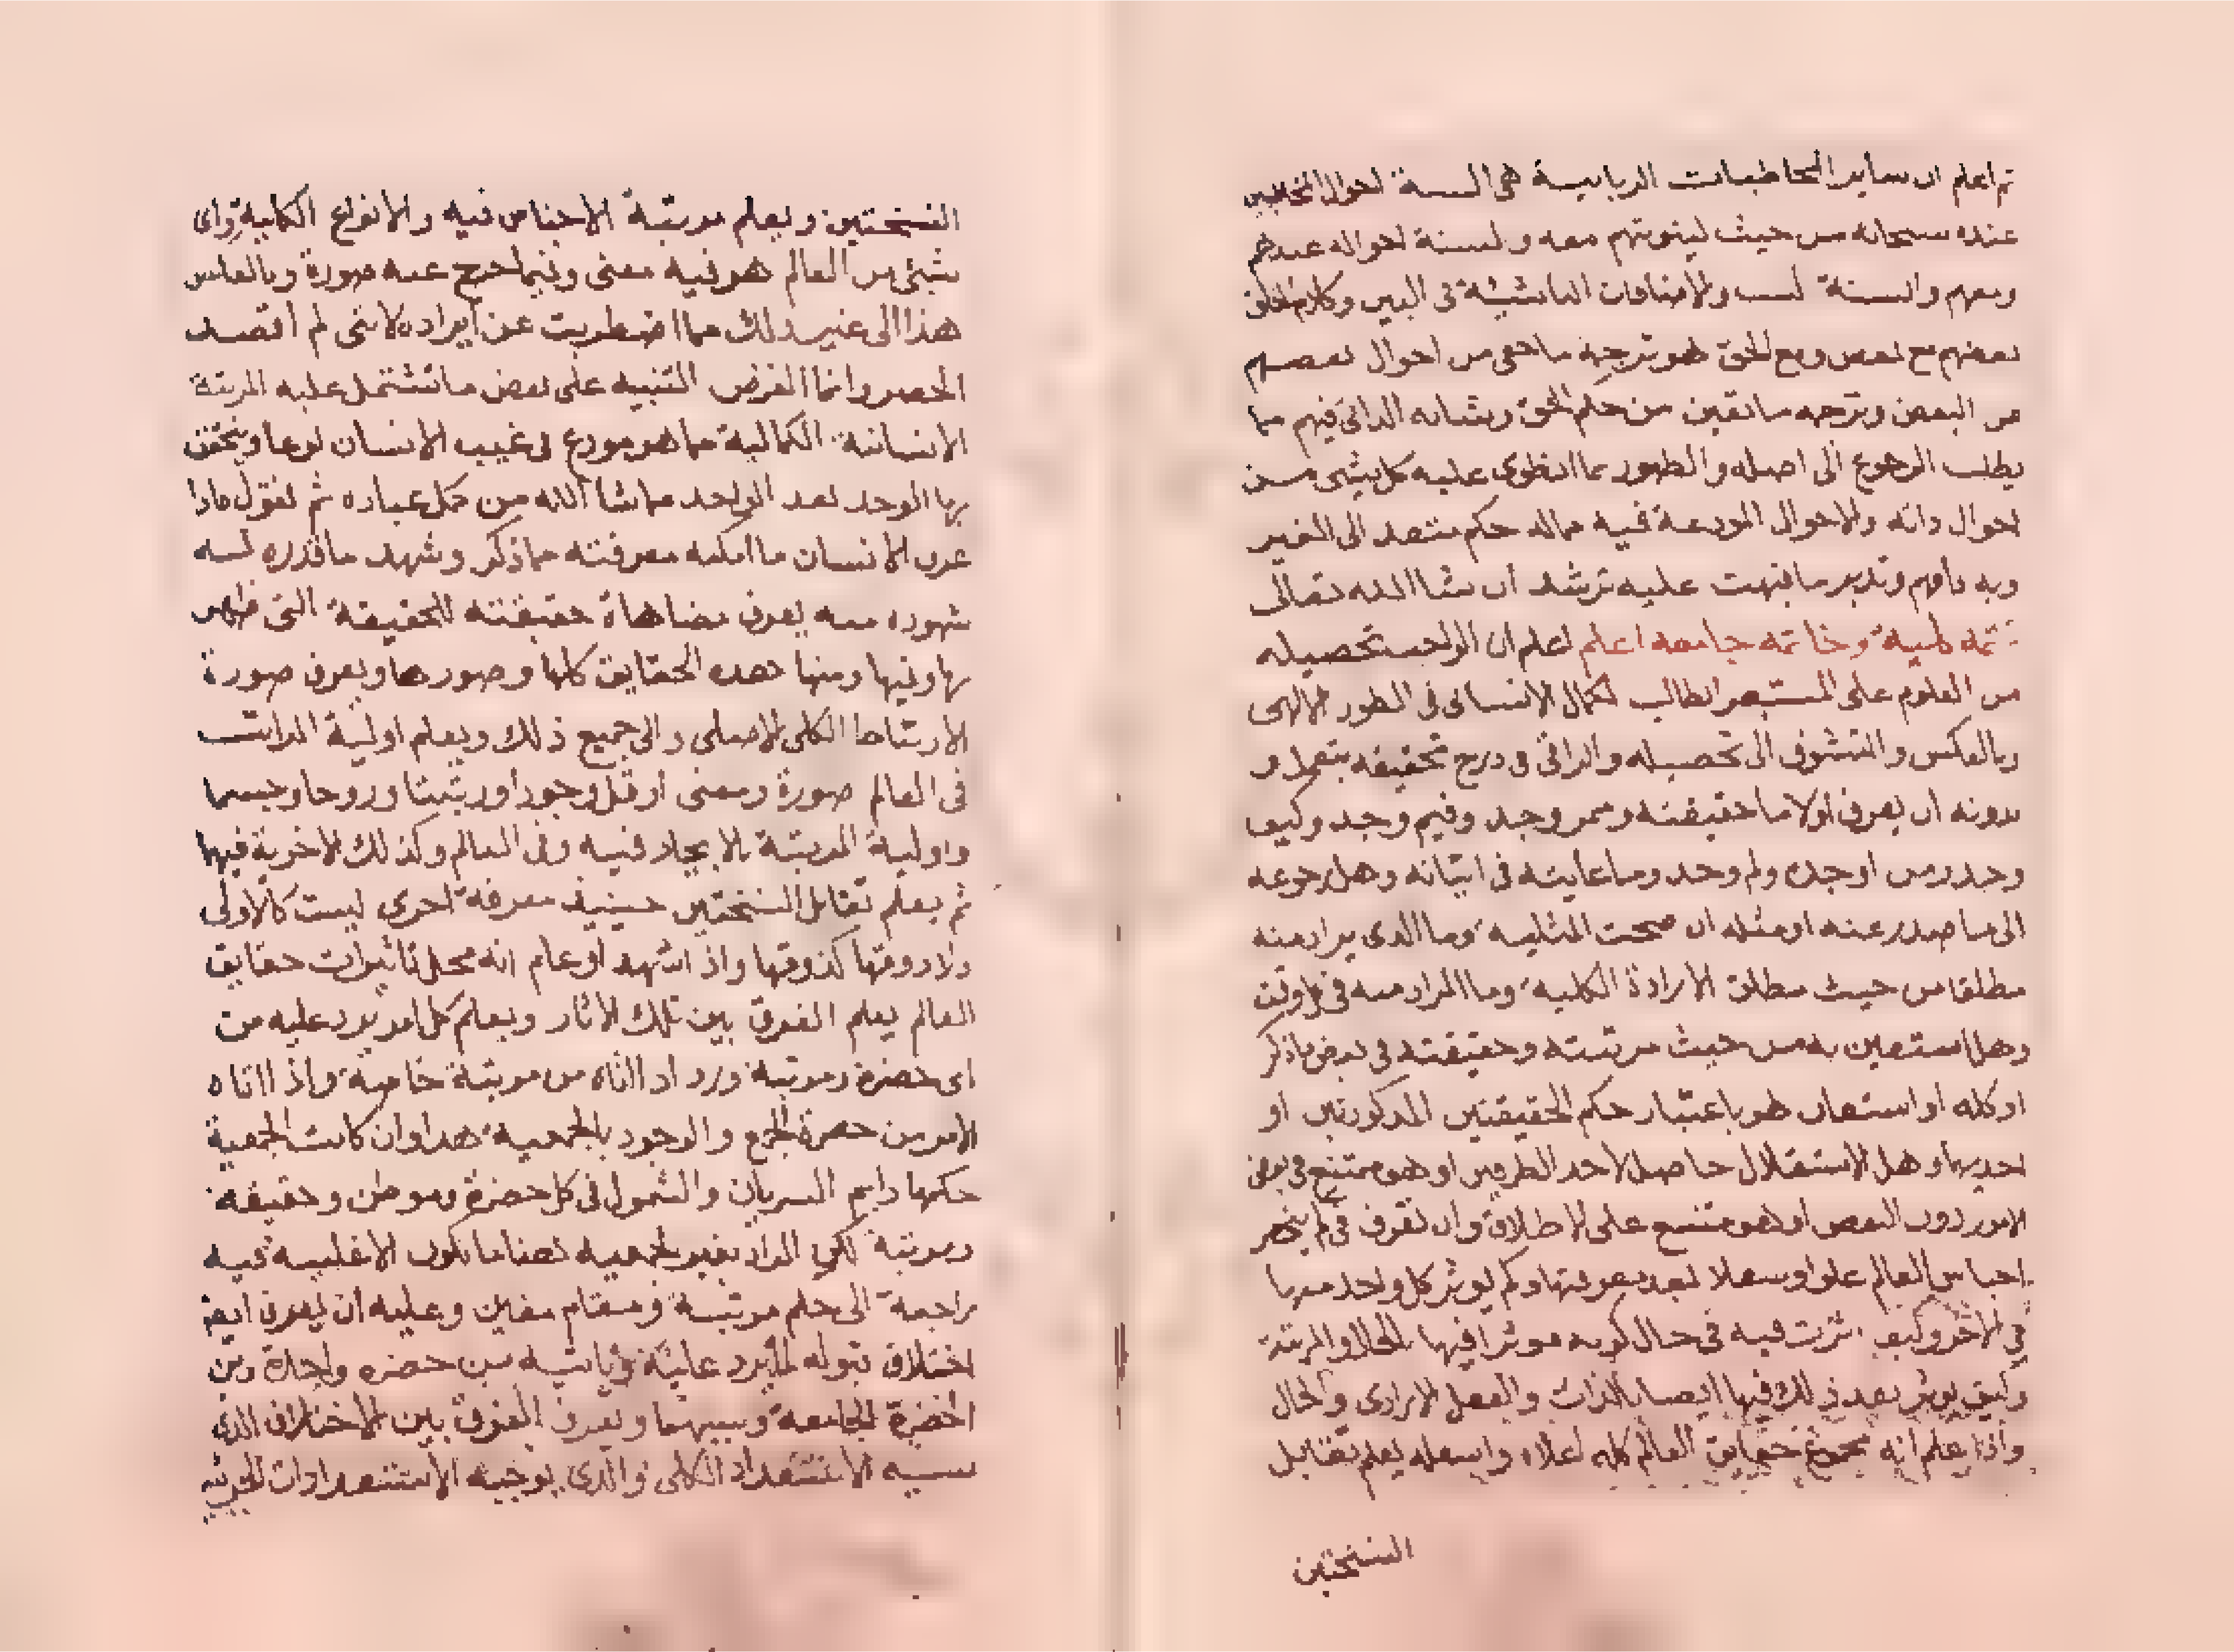 ثم اعلم ان ساير المخاطبات الربانية هى السنة احوال المخاطبين
عنده سبحانه من حيث لينونتهم معه والسنة احواله عندهم
ومعهم والسنة لسب والاضافات الناشئة فى البين وكلام الخلق
بعضهم مع بعض ومع الحق هو ترجمة ما خفى من احوال بعضهم
من البعض وترجمه ما تعين من حكم الحق وشانه الذاتى فيهم مما
يطلب الرجوع الى اصله والظهور بما انطوى عليه كل شى من
احوال ذاته والاحوال المودعة فيه مما له حكم متعد الى الغير
وبه فافهم وتدبر ما نبهت عليه ترشد ان شا الله تعالى
تتمه كلمية وخاتمه جامعه اعلم اعلم ان الواجب تحصيله
من العلوم على المستبصر الطالب لكمال الانسانى فى الطور
وبالعكس والمتشوف الى تحصيله والراقى فى درج تحقيقه بتعمل و
بدونه ان يعرف اولا ما حقيقته ومم وجد وفيم وجد وكيف
وجد ومن اوجده ولم وجد وما غايته فى اتيانه وهل رجوعه
الى ما صدر عنه او مثله ان صحت المثلية وما الذى يراد منه
مطلقا من حيث مطلق الارادة الكلية وما المراد منه فى كل وقت
وهل استعين به من حيث مرتبته وحقيقته فى بعض ما ذكر
او كله او استعان هو باعتبار حكم الحقيقتين المذكورتين او
احديهما وهل الاستقلال حاصل لاحد الطرفين او هو ممتنع فى بعض
الامور دون البعض او هو متنع على الاطلاق وان تعرف فى كم ينحصر
اجناس العالم علوا وسفلا بعد معرفتها وكم يوثر كل واحد منها
فى الاخر وكيف اثرت فيه فى حال كونه موثرا فيها بالحال والمرتبة
وكيف يوثر بعد ذلك فيها ايضا بالذات والفعل الارادى والحال
واذا علم انه مجموع حقايق العالم كله اعلاه واسفله يعلم تقابل
النسختين
النسختين ويعلم مرتبة الاجناس فيه والانواع الكلية واى
شئ من العالم هو فيه معنى وفيما خرج عنه صورة وبالعكس
هذا الى غير ذلك مما اضطربت عن ايراده لانى لم اقصد
الحصر وانما الغرض التنبيه على بعض ما تشتمل عليه المرتبة
الانسانية الكمالية مما هو مودع فى غيب الانسان نوعا ويتحقق
بها الوحد بعد الواحد مما شا الله من كمل عباده ثم نقول فاذا
عرف الانسان ما امكنه معرفته مما ذكر وشهد ما قدر له
شهوده منه يعرف مضاهاة حقيقته للحقيقة التى ظهر
بها وفيها ومنها هذه الحقايق كلها وصورها ويعرف صورة
الارتباط الكلى الاصلى والى جميع ذلك ويعلم اولية المراتب
فى العالم صورة ومعنى او قل وجودا ورتبتا وروحا وجسما
واولية المرتبة بالايجاد فيه وفى العالم وكذلك الاخرية فيها
ثم يعلم تقابل النسختين حينيذ معرفة اخرى ليست كالاولى
ولا ذوقها كذوقها واذ اشهد او علم انه محل تاثيرات حقايق
العالم يعلم الفرق بين تلك الاثار ويعلم كل امر يرد عليه من
اى حضرة ومرتبة ورد اذ اتاه من مرتبة خاصة واذا اتاه
الامر من حضرة الجمع والوجود بالجمعية هذا وان كانت الجمعية
حكمها دايم السريان والشمول فى كل حضرة وموطن وحقيقة
ومرتبة لكن المراد بغير الجمعية هنا ما تكون الاغلبية فيه
راجعة الى حكم مرتبة ومقام معين وعليه ان يعرف ايضا
اختلاف قبوله لما يرد عليه وياتيه من حضره واحدة ومن
الحضرة الجامعة وسببهما ويعرف الفرق بين الاختلاف الذى
سببه الاستعداد الكلى والذى يوجبه الاستعدادات الجزئية